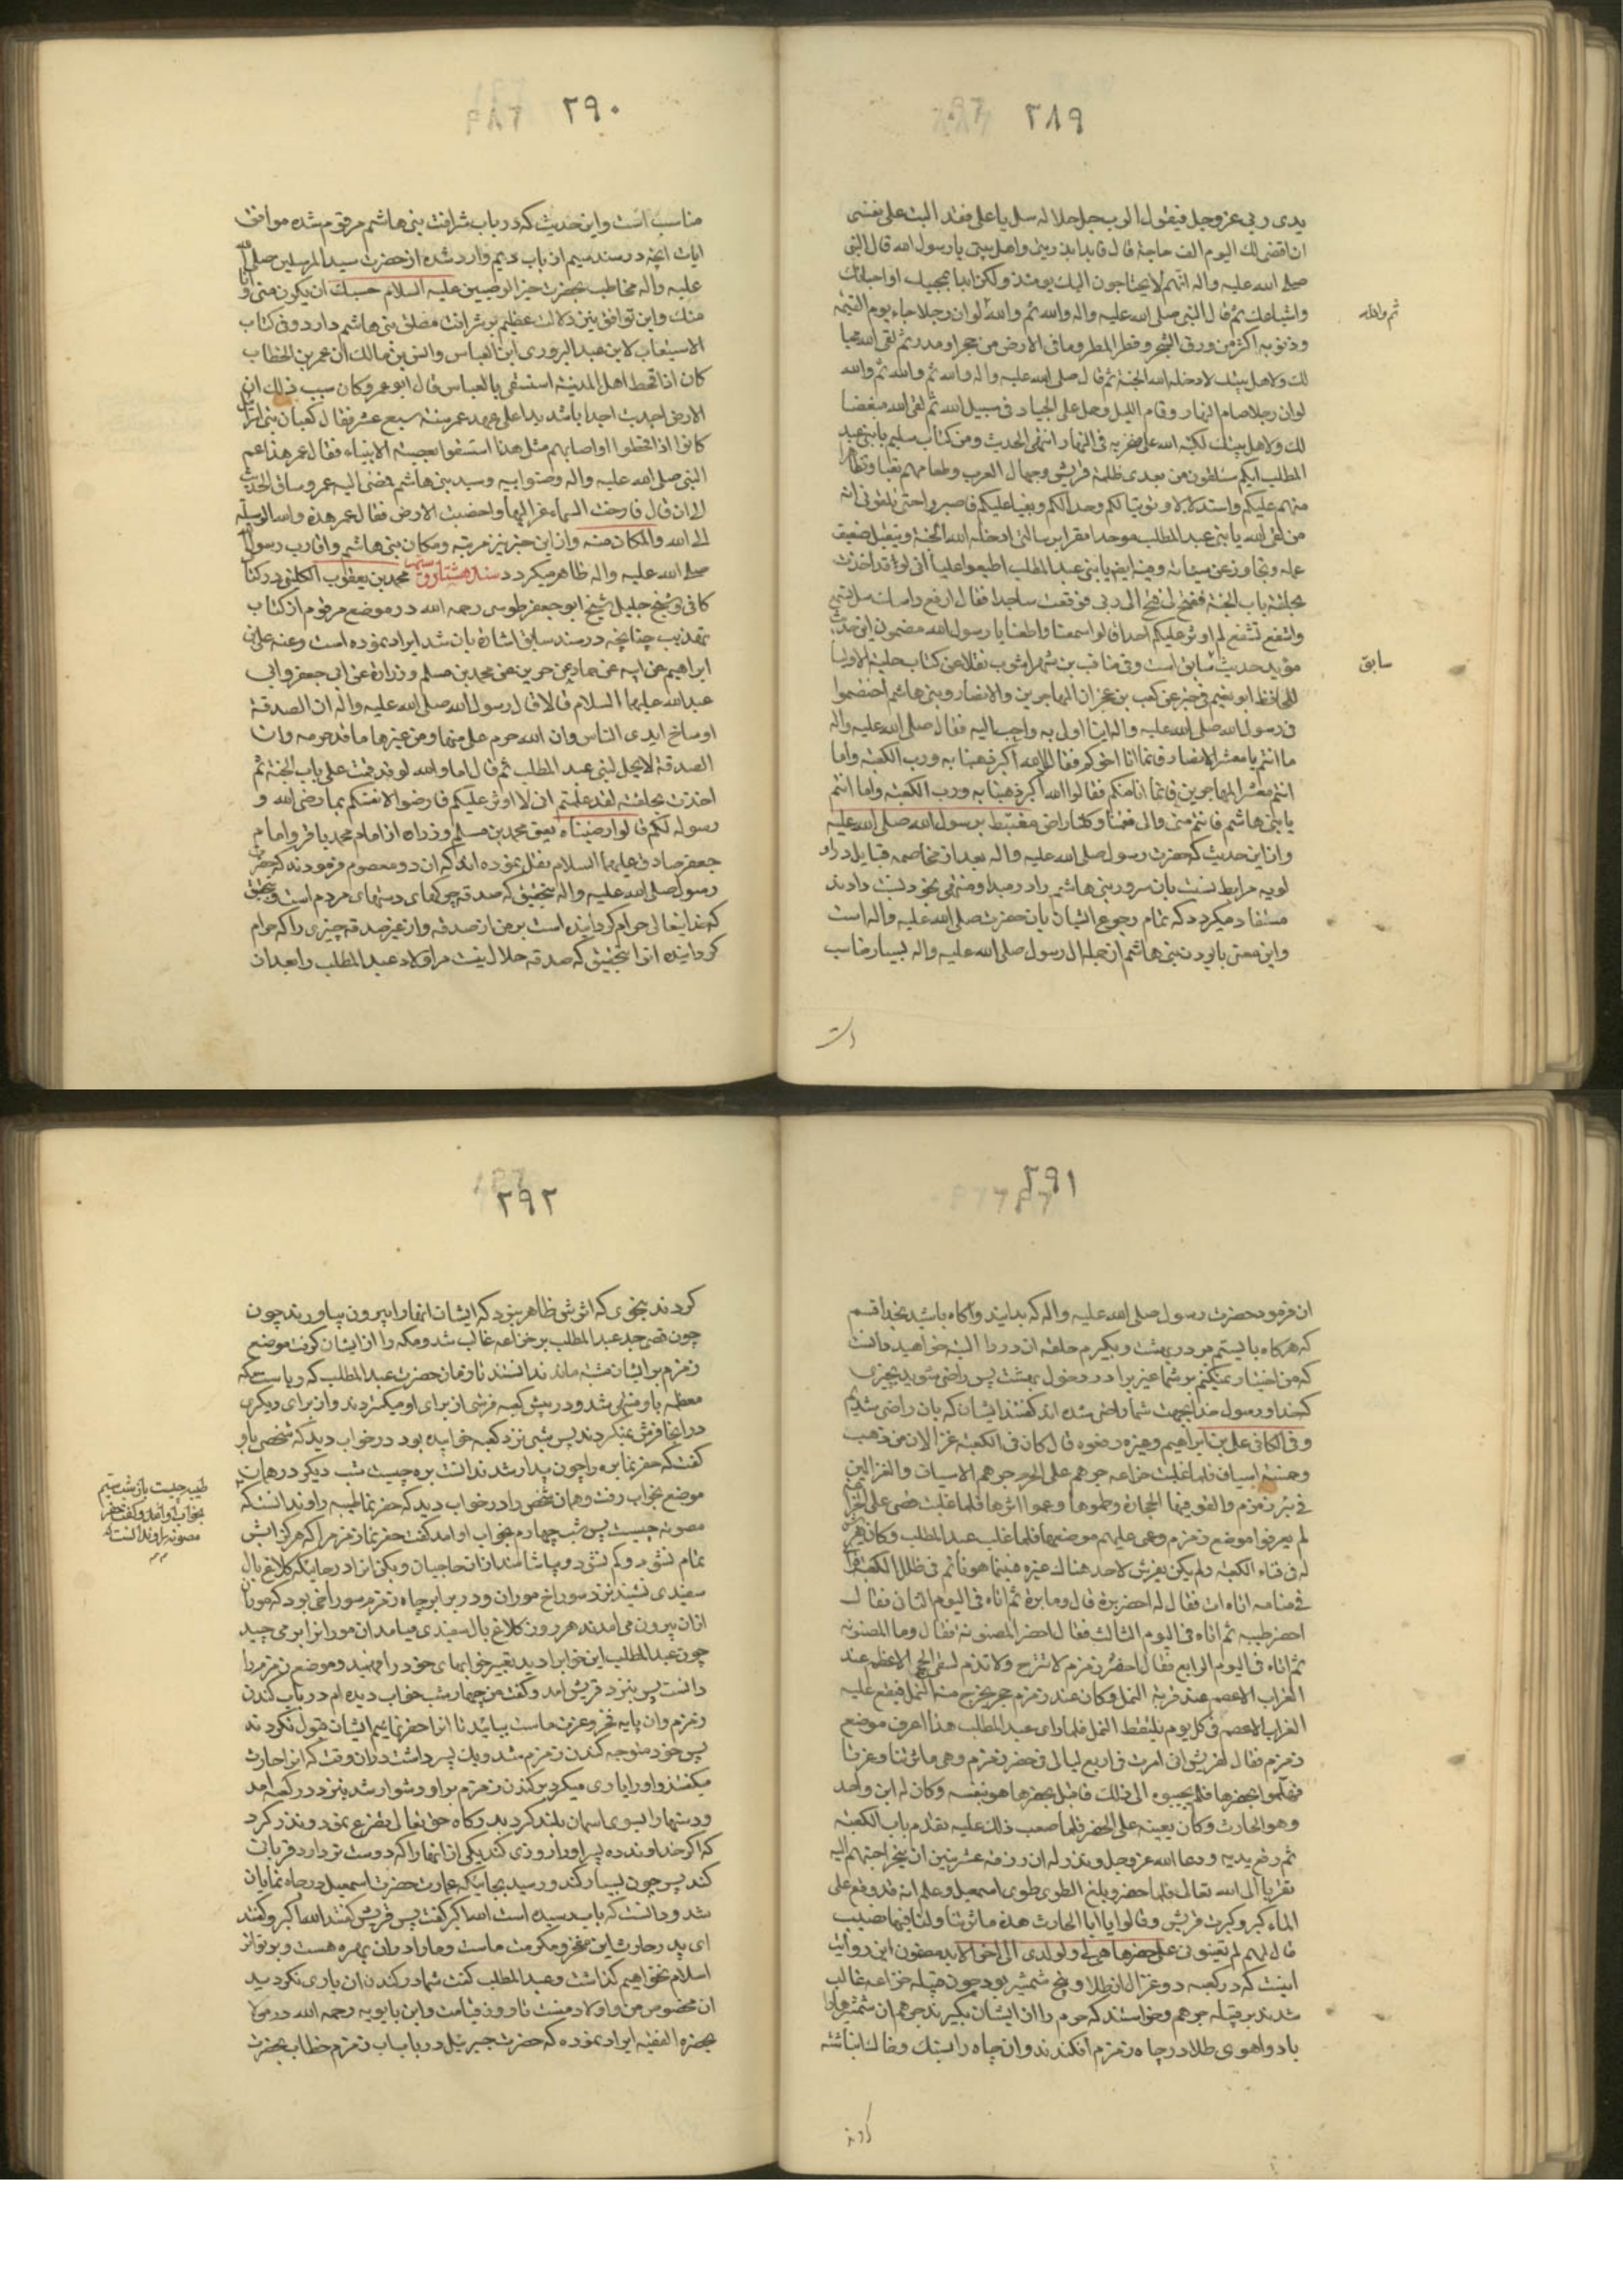 ٢٨٩
یدی ربی عزوجل فیقول الرب جل جلاله سل یا علی فقد الیت علی نفسی
ان اقضی لک الیوم الف حاجة قال فابدا بذریتی واهل بیتی یا رسول الله قال النبی
صلی الله علیه واله انهم لا یحتاجون الیک یومئذ ولکن ابدا بمحبیک او احبائک
واشیاعک ثم قال النبی صلی الله علیه واله والله ثم والله لو ان رجلا جاء یوم القیمه
ثم والله
وذنوبه اکثر من ورق الشجر وقطر المطر وما فی الارض من حجر او مدر ثم لقی الله محبا
لک ولاهل بیتک لادخله الله الجنة ثم قال صلی الله علیه واله والله ثم والله ثم والله
لو ان رجلا صام النهار وقام اللیل وحمل علی الجیاد فی سبیل الله ثم لقی الله مبغضا
لک ولاهل بیتک لکبه الله علی منخریه فی النار انتهی الحدیث ومن کتاب سلیم یا بنی عبد
المطلب انکم ستلقون من بعدی ظلمة قریش وجهال العرب وطغامهم تعبا وتظاهرا
منهم علیکم واستذلالا وتوثبا لکم وحسدا لکم وبغیا علیکم فاصبروا حتی تلقونی انه
من لقی الله یا بنی عبد المطلب موحدا مقرا برسالتی ادخله الله الجنة ویتقبل ضعیف
عمله وتجاوز عن سیئاته وفیه ایضا یا بنی عبد المطلب اطیعوا علیا انی لو قد اخذت
بحلقة باب الجنة ففتح لی فتح الی ربی فوقعت ساجدا فقال ارفع راسک سل تسمع
واشفع تشفع لم اوثر علیکم احدا قالوا سمعنا واطعنا یا رسول الله مضمون این حدیث
مؤید حدیث سابق است وفی مناقب بن شهراشوب نقلا عن کتاب حلیة الاولیاء
سابق
للحافظ ابو نعیم فی خبر عن کعب بن عجز ان المهاجرین والانصار وبنی هاشم اختصموا
فی رسول الله صلی الله علیه واله اینا اولی به واحب الیه فقال صلی الله علیه واله
ما انتم یا معشر الانصار فانما انا اخوکم فقالوا الله اکبر ذهبنا به ورب الکعبة واما
انتم معشر المهاجرین فانما انا منکم فقالوا الله اکبر ذهبنا به ورب الکعبه واما انتم
یا بنی هاشم فانتم منی والی فقمنا وکلنا راض مغتبط برسول الله صلی الله علیه
وازین حدیث که حضرت رسول صلی الله علیه واله بعد از مخاصمه قبایل در او
لویه مرابط نسبت بان سرور بنی هاشم را در مبدا ومنتهی بخود نسبت دادند
مستفاد میکردد که تمام رجوع ایشان بان حضرت صلی الله علیه واله است
واین معنی بابودن بنی هاشم از جمله ال رسول صلی الله علیه واله بسیار مناسب
است
٢٩٠
مناسب است واین حدیث که در باب شرافت بنی هاشم مرقوم شده موافق
ایات انچه در سند سیم از باب دیم وارد شده از حضرت سید المرسلین صلی الله
علیه واله مخاطب بحضرت خیر الوصیین علیه السلام حسبک ان یکون منی وانا
منک واین توافق بین دلالت عظیم بر شرافت مطلق بنی هاشم دارد وفی کتاب
الاستیعاب لابن عبد البر وروی ابن العباس وانس بن مالک ان عمر بن الخطاب
کان اذا قحط اهل المدینة استسقی بالعباس قال ابو عمر وکان سبب ذلک ان
الارض اجدبت اجدابا شدیدا علی عهد عمر سنة سبع عشر فقال کعب ان بنی اسرائیل
کانوا اذا قحطوا او اصابهم مثل هذا استسقوا بعصبة الانبیاء فقال عمر هذا عم
النبی صلی الله علیه واله وصنو ابیه وسید بنی هاشم فمضی الیه عمر وساق الحدیث
الی ان قال فارخت السماء عزالیها واخصبت الارض فقال عمر هذه والله الوسیلة
الی الله والمکان منه وازاین خبر نیز مرتبه ومکان بنی هاشم واقارب رسول الله
صلی الله علیه واله ظاهر میکردد سند هشتاد و سیم محمد بن یعقوب الکلینی در کتاب
کافی وشیخ جلیل شیخ ابو جعفر طوسی رحمه الله در موضع مرقوم از کتاب
تهذیب چنانچه در سند سابق اشاره بان شد ایراد نموده است وعنه علی بن
ابراهیم عن ابیه عن حماد عن حریز عن محمد بن مسلم وزرارة عن ابی جعفر وابی
عبد الله علیهما السلام قالا قال رسول الله صلی الله علیه واله ان الصدقة
اوساخ ایدی الناس وان الله حرم علی منها ومن غیرها ما قد حرمه وان
الصدقة لا یحل لبنی عبد المطلب ثم قال اما والله لو قد قمت علی باب الجنة ثم
اخذت بحلقته لقد علمتم انی لا اوثر علیکم فارضوا لانفسکم بما رضی الله و
رسوله لکم قالوا رضینا ه یعنی محمد بن مسلم وزراره از امام محمد باقر وامام
جعفر صادق علیهما السلام نقل نموده اند که ان دو معصوم فرمودند که حضرت
رسول صلی الله علیه واله بتحقیق که صدقه چرکهای دستهای مردم است وبتحقیق
که خدایتعالی حرام کردانیده است بر من از صدقه واز غیر صدقه چیزی را که حرام
کردانیده انرا بتحقیق که صدقه حلال نیست مر اولاد عبد المطلب را بعد ان
٢٩١
ان فرمود حضرت رسول صلی الله علیه واله که بدانید واکاه باشید بخدا قسم
که هر کاه بایستم بر در بهشت وبکیرم حلقه ان در را البته خواهید دانست
که من اختیار نمیکنم بر شما غیر برا در دخول بهشت پس راضی شوید بچیزی
که خدا ورسول خدا بجهت شما راضی شده اند کفتند ایشان که بان راضی شدیم
وفی الکافی علی بن ابراهیم وغیره رفعوه قال کان فی الکعبة غزالان من ذهب
وخمسة اسیاف فلما غلبت خزاعه جرهم علی الحرم القت جرهم الاسیاف والغزالین
فی بئر زمزم والقوا فیها الحجارة وطموها وعموا اثرها فلما غلبت قصی علی خزاعه
لم یعرفوا موضع زمزم وعمی علیهم موضعها فلما غلب عبد المطلب وکان یفرش
له فی فناء الکعبه ولم یکن یفرش لاحد هناک غیره فبینما هو نائم فی ظل الکعبه فرای
فی منامه اتاه ات فقال له احفر برة قال وما برة ثم اتاه فی الیوم الثانی فقال
احفر طیبه ثم اتاه فی الیوم الثالث فقال احفر المصنونه فقال وما المصنونه
ثم اتاه فی الیوم الرابع فقال احفر زمزم لا تنزح ولا تذم لسقی الحجیج الاعظم عند
الغراب الاعصم عند قریة النمل وکان عند زمزم حجر یخرج منه النمل فیقع علیه
الغراب الاعصم فی کل یوم یلتقط النمل فلما رای عبد المطلب هذا عرف موضع
زمزم فقال لقریش انی امرت فی اربع لیالی فی حفر زمزم وهی ماثرتنا وعزنا
فهلموا نحفرها فلم یجیبوه الی ذلک فاقبل یحفرها هو بنفسه وکان له ابن واحد
وهو الحارث وکان یعینه علی الحفر فلما صعب ذلک علیه تقدم باب الکعبه
ثم رفع یدیه ودعا الله عزوجل ونذر له ان رزقه عشر بنین ان ینحر احبهم الیه
تقربا الی الله تعالی فلما حفر وبلغ الطوی طوی اسمعیل وعلم انه قد وقع علی
الماء کبر وکبرت قریش وقالوا یا ابا الحارث هذه ماثرتنا ولنا فیها نصیب
قال لهم لم تعینونی علی حفرها هی لی ولولدی الی اخر الابد مضمون این روایت
اینست که در کعبه دو غزال از طلا وپنج شمشیر بود چون قبیله خزاعه غالب
شدند بر قبیله جرهم وخواستند که حرم را از ایشان بکیرند جرهم ان شمشیرها را
با دو اهوی طلا در چاه زمزم افکندند وان چاه را بسنک وخاک انباشته
کردند
٢٩٢
کردند بنحوی که اثرش ظاهر نبود که ایشان انها را بیرون نیاورند چون
چون قصی جد عبد المطلب بر خزاعه غالب شد ومکه را از ایشان کرفت موضع
زمزم بر ایشان مشتبه ماند ندانستند تا زمان حضرت عبد المطلب که ریاست مکه
معظمه باو منتهی شد ودر پیش کعبه فرشی از برای او میکستردند واز برای دیکری
در انجا فرش نمیکردند پس شبی نزد کعبه خوابیده بود در خواب دید که شخصی باو
کفت که حفر نما بره را چون بیدار شد ندانست بره چیست شب دیکر در همان
موضع بخواب رفت وهمان شخص را در خواب دید که حفر نما طیبه را وندانست که
طیبه چیست باز شب سیم
بخواب او امد وکفت حفر
مصونه را وندانست که
مصونه چیست پس شب چهارم بخواب او امد کفت حفر نما زمزم را که هرکز ابش
تمام نشود وکم نشود وبیاشامند از ان حاجیان وبکن انرا در جائیکه کلاغ بال
سفیدی نشیند نزد سوراخ موران ودر برابر چاه زمزم سوراخی بود که موران
ازان بیرون می امدند هر روز کلاغ بال سفیدی میامد ان مورانرا بر می چید
چون عبد المطلب این خوابرا دید تعبیر خوابهای خود را فهمید وموضع زمزم را
دانست پس بنزد قریش امد وکفت من چهار شب خواب دیده ام در باب کندن
زمزم وان پایه فخر وعزت ماست بیائید تا انرا حفر نمائیم ایشان قبول نکردند
پس خود متوجه کندن زمزم شد ویک پسر داشت در ان وقت که انرا حارث
میکفتند واو را یاری میکرد بر کندن زمزم بر او دشوار شد بنزد در کعبه امد
ودستها را بسوی اسمان بلند کرد بدرکاه حق تعالی تضرع نمود ونذر کرد
که اکر خداوند ده پسر او را روزی کند یکی از انها را که دوست تر دارد قربان
کند پس چون بسیار کند ورسید بجائیکه عمارت حضرت اسمعیل در چاه نمایان
شد ودانست که باب رسیده است الله اکبر کفت پس قریش کفتند الله اکبر وکفتند
ای پدر حارث این مفخر ومکرمت ماست وما را در ان بهره هست
اسلام نخواهیم کذاشت وعبد المطلب کفت شما در کندن ان یاری نکردید
ان مخصوص من واولاد منست تا روز قیامت وابن بابویه رحمه الله در من لا
یحضره الفقیه ایراد نموده که حضرت جبرئیل در باب اب زمزم خطاب بحضرت